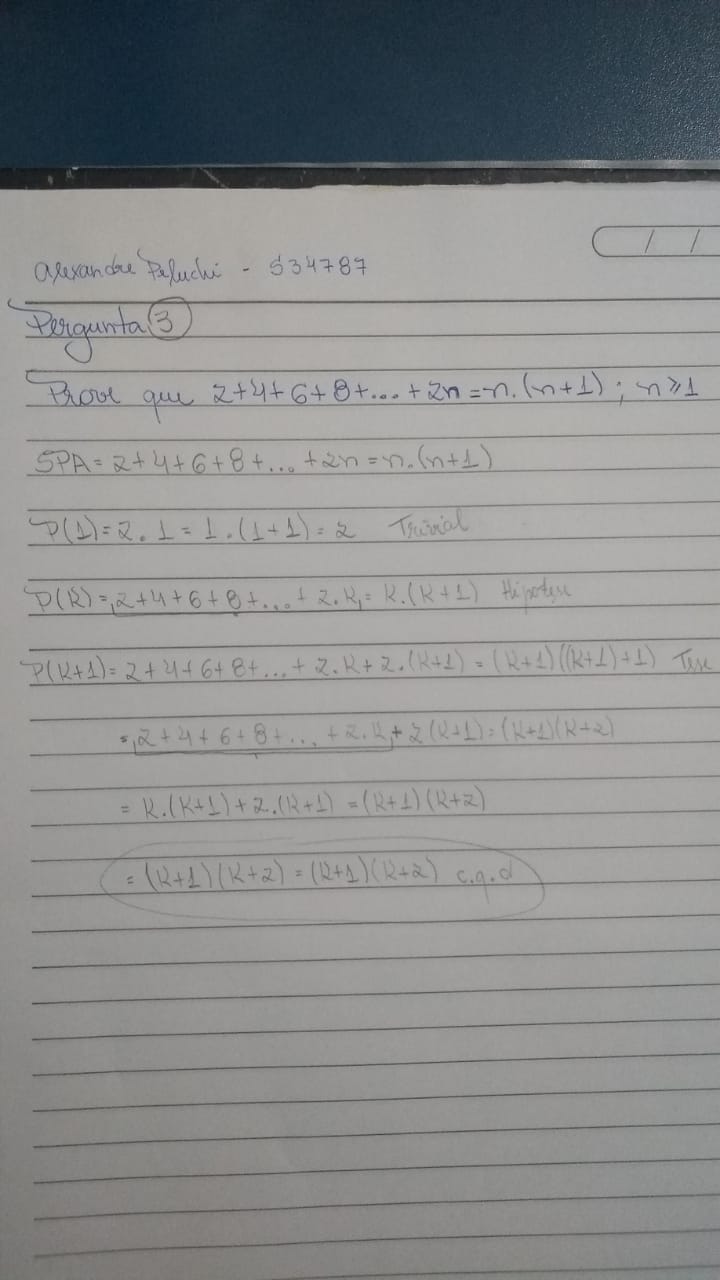 Alexandre Peluchi - 534787
Pergunta 3
Prove que 2+4+6+8+...+2n=n.(n+1); n≥1
SPA=2+4+6+8+...+2n=n.(n+1)
P(1)=2.1=1.(1+1)=2 Trivial
P(K)=2+4+6+8+...+2.K=K.(K+1) Hipótese
P(K+1)=2+4+6+8+...+2.K+2.(K+1)=(K+1)((K+1)+1) Tese
=2+4+6+8+...+2.K+2(K+1)=(K+1)(K+2)
=K.(K+1)+2.(K+1)=(K+1)(K+2)
=(K+1)(K+2)=(K+1)(K+2) c.q.d